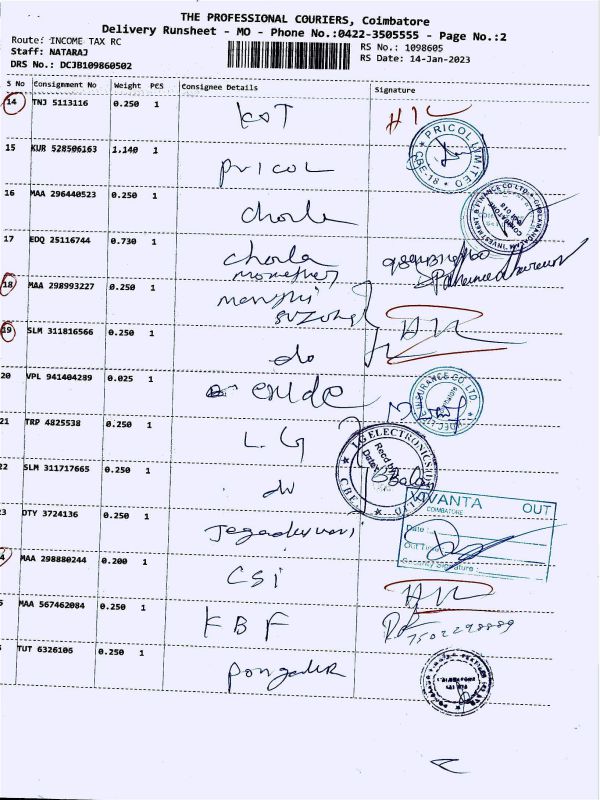 THE PROFESSIONAL COURIERS, Coimbatore
Delivery Runsheet - MO - Phone No.:0422-3505555 - Page No.:2
Route: INCOME TAX RC
RS No.: 1098605
Staff: NATARAJ
RS Date: 14-Jan-2023
DRS No.: DCJB109860502
S No Consignment No Weight PCS Consignee Details Signature
14 TNJ 5113116 0.250 1 KOT
PRICOL LIMITED
CBE-18
15 KUR 528506163 1.140 1 Pricol
16 MAA 296440523 0.250 1 Chorla
CHOLAMANDALAM INVESTMENT & FINANCE CO LTD
17 EDQ 25116744 0.730 1 Chorla
18 MAA 298993227 0.250 1
19 SLM 311816566 0.250 1 do
INSURANCE CO LTD
20 VPL 941404289 0.025 1
21 TRP 4825538 0.250 1 LG
LG ELECTRONICS
Recd by
Date
CBE
22 SLM 311717665 0.250 1 do
VIVANTA OUT
COIMBATORE
Date :
Out Time
Security Signature :
23 DTY 3724136 0.250 1
24 MAA 298880244 0.200 1 CSI
MAA 567462084 0.250 1 KBF
7502298889
TUT 6326106 0.250 1